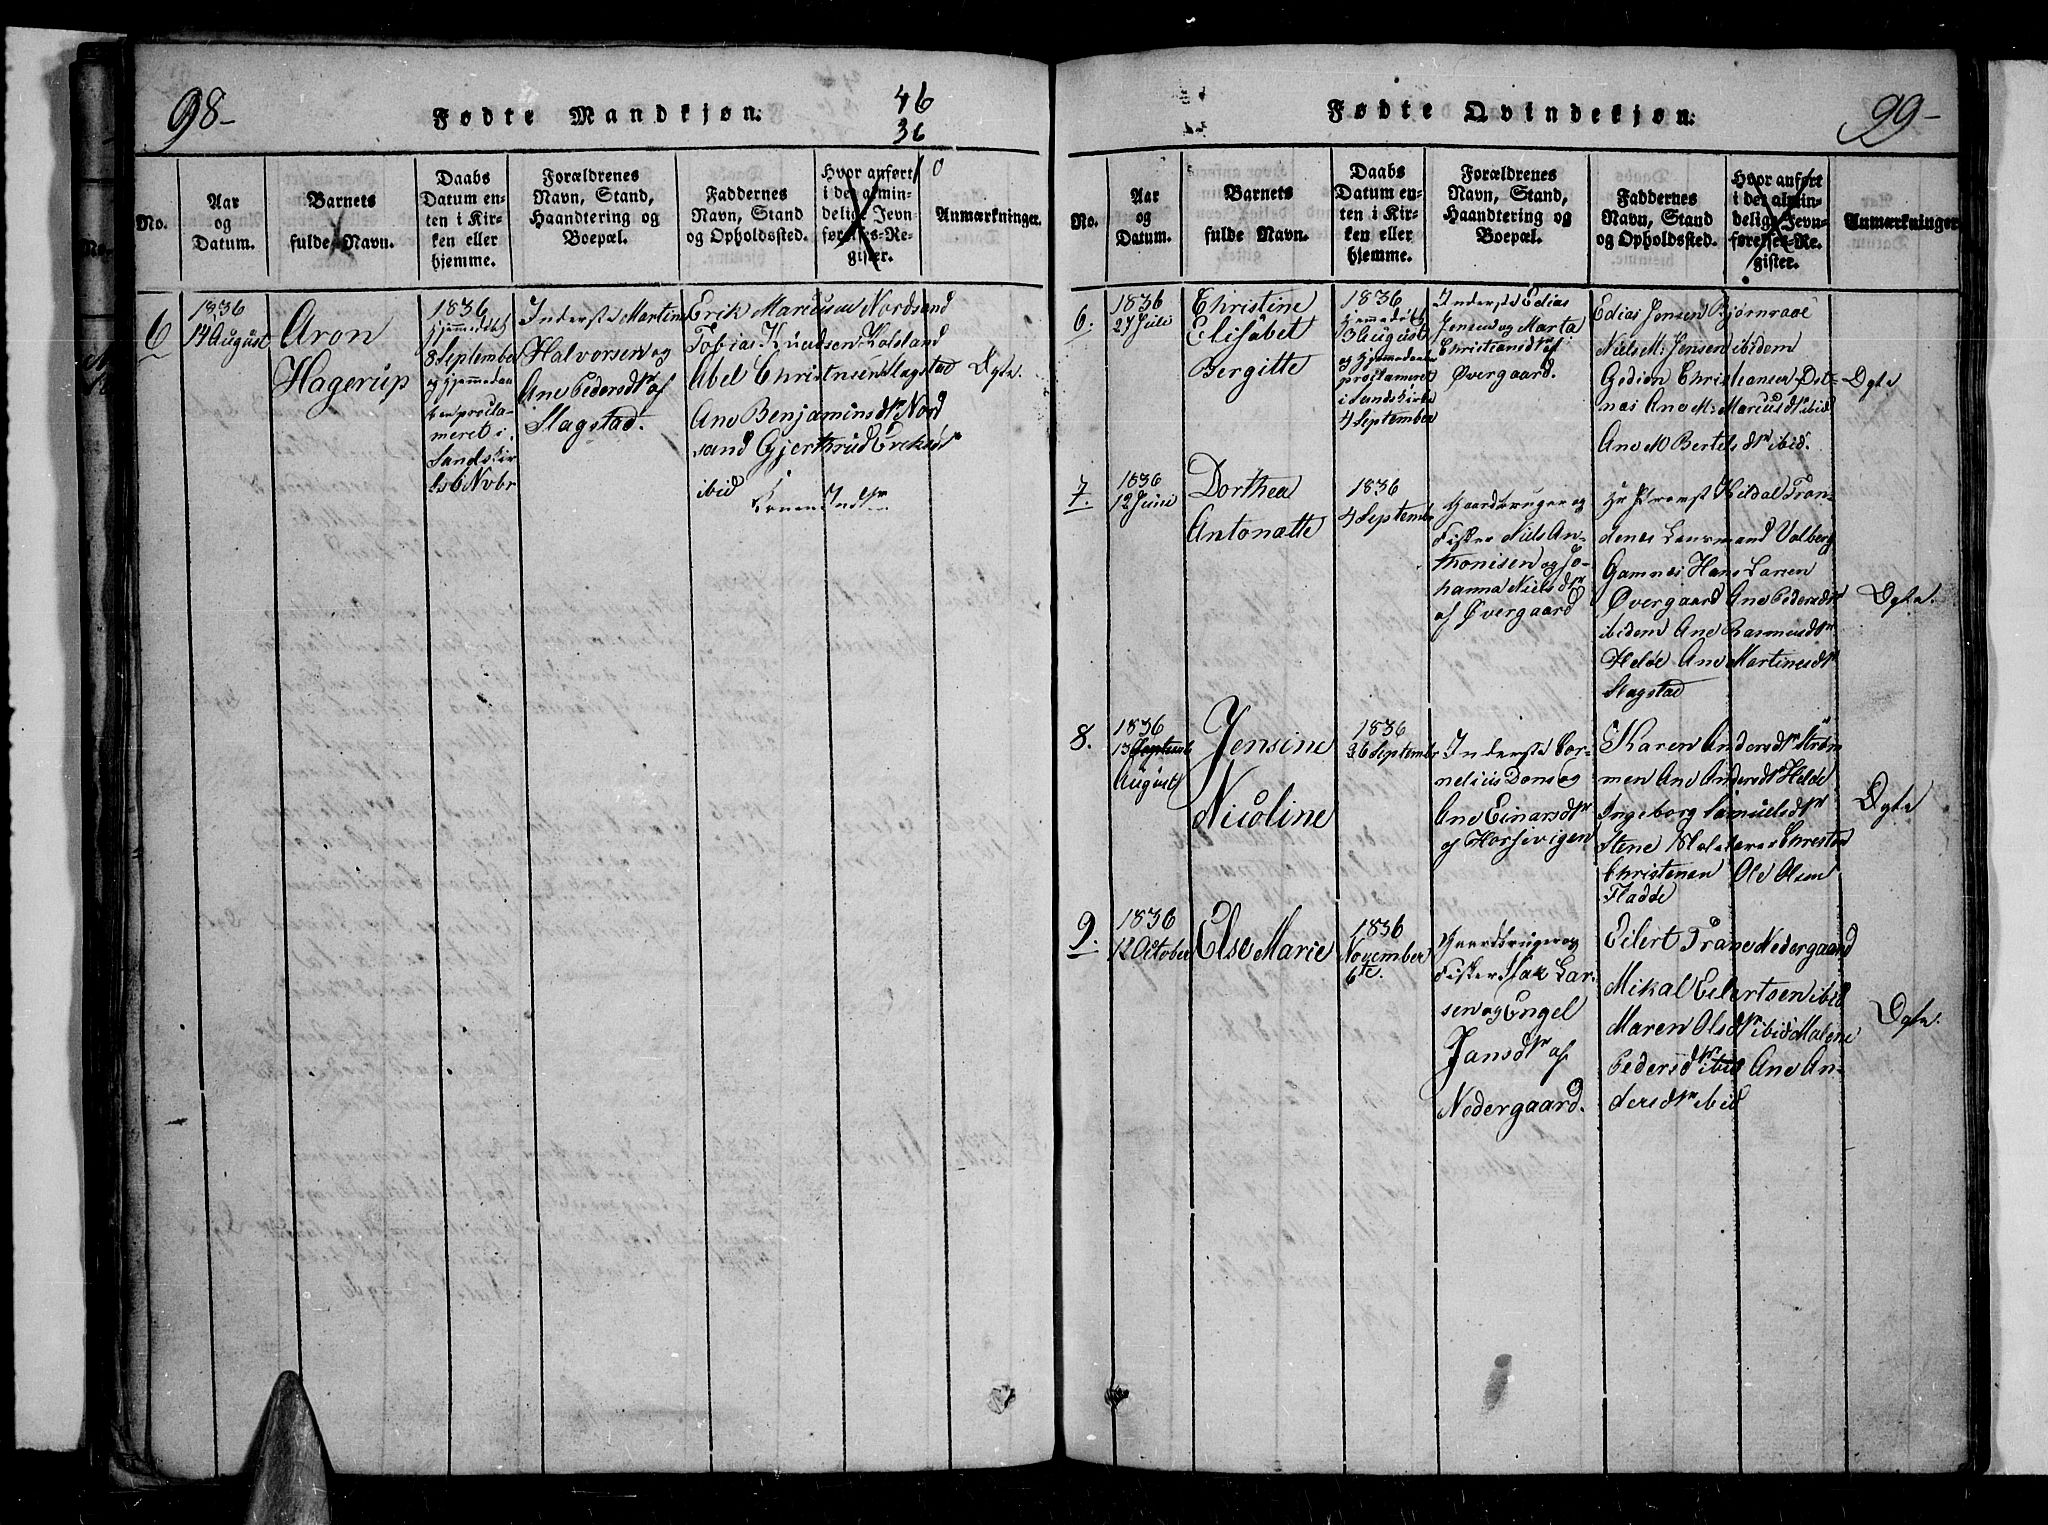 98-
Fødte Mandkjøn.
46
36
10
No.
Aar
og
Datum.
Barnets
fulde Navn.
Daabs
Datum en-
ten i Kir-
ken eller
hjemme.
Forældrenes
Navn, Stand,
Haandtering og
Boepæl.
Faddernes
Navn, Stand
og Opholdssted.
Hvor anført
i det almin-
delige Jevn-
førelses-Re-
gister.
Anmærkninger.
6
1836
14 August
Aron
Hagerup
1836
hjemmedøbt
8 September
og hjemmedaa
ben procla-
meret i
Sandskir
ke 6 Novbr
Inderste Martin
Halvorsen og
Ane Pedersdtr af
Slagstad.
Erik Marcusen Nordsand
Tobias Knudsen Kolsland
Abel Christnsen Slagstad
Ane Benjaminsdtr Nord
sand Gjerthrud Eriksdtr
ibid
Dgte.
99-
Fødte Qvindekjøn.
No.
Aar
og
Datum.
Barnets
fulde Navn.
Daabs
Datum en-
ten i Kir-
ken eller
hjemme.
Forældrenes
Navn, Stand,
Haandtering og
Boepæl.
Faddernes
Navn, Stand
og Opholdssted.
Hvor anført
i det almin-
delige Jevn-
førelses-Re-
gister.
Anmærkninger
6.
1836
27 Juli
Christine
Elisabet
Bergitte
1836
hjemmedøbt
3 August
og hjemmedaaben
proclameret
i Sandskirke
4 September
Inderste Edias
Jensen og Marta
Christiansdtr af
Øvergaard.
Edias Jensen Bjørnraae
Niels M. Jensen ibidem
Gedion Christiansen Det-
næs Ane M. Marcusdtr ibid
Ane M Bertelsdtr ibid.
Dgte
7.
1836
12 Juni
Dorthea
Antonætte
1836
4 Septembr
Gaardbruger og
Fisker Niels An-
thonisen og Jo-
hanna Nielsdtr
af Øvergaard
Hr Provst Kildal Tron-
denes Lensmand Valberg
Gamnes Hans Larsen
Øvergaard Ane Pedersdtr
ibidem Ane Rasmusdtr
Heløe Ane Martinesdtr
Slagstad
Dgte.
8.
1836
13 Septemb
August
Jensine
Nicoline
1836
26 Septembr
Inderste Cor-
nelius Dons og
Ane Einarsdtr
af Horsevigen
Karen Andersdtr Strøm
men Ane Andersdtr Heløe
Ingeborg Samuelsdtr
Stene
Christensen Ole Olsen
Fladøe
Dgte
9.
1836
12 October
Else Marie
1836
November
6te.
Gaardbruger og
Fisker Isak Lar-
sen og Engel
Jansdtr af
Nedergaard.
Eilert Trane Nedergaard
Mikal Eilertsen ibid
Maren Olsdtr ibid Malene
Pedersdtr ibid Ane An-
dersdtr ibid
Dgte.